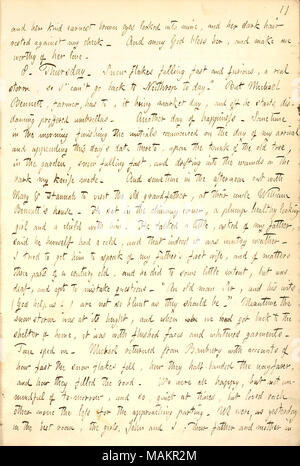 11
and her kind earnest brown eyes looked into mine, and her dark hair
rested against my cheek. And may God bless her, and make me
worthy of her love.
8. Thursday. Snow flakes falling fast and furious, a real
storm, so I can't go back to Neithrop to day. But Michael
Bennett, farmer, has to, it being market day, and off he starts dis-
daining proffered umbrellas. Another day of happiness. Sometime
in the morning finishing the initials commenced on the day of my arrival
and appending this day's date thereto, upon the trunk of the old tree,
in the garden, snow falling fast, and drifting into the wounds in the
bark my knife made. And sometime in the afternoon out with
Mary & Hannah to visit the old grandfather, at their uncle William
Bennett's house. He sat in the chimney corner, a plump healthy looking
girl and a child with him. He talked a little, asked of my father,
said he himself had a cold, and that indeed it was wintry weather.
I tried to get him to speak of my father's first wife, and of matters
three parts of a century old, and he did to some little extent, but was
deaf, and apt to mistake questions. "An old man sir, and his wits
(God help us!) are not so blunt as they should be." Meantime the
snow storm was at its height, and when we had got back to the
shelter of home, it was with flushed faces and whitened garments.
Time sped on. Michael returned from Banbury with accounts of
how fast the snow flakes fell, how they half blinded the wayfarer,
and how they filled the road. We were all happy, but not un-
mindful of to-morrow, and so, quiet at times, but loved each
other more the like for the approaching parting. We were, as yesterday
in the best room, the girls, John and I; their father and mother in
alamy
Image ID: MAKR2M
www.alamy.com